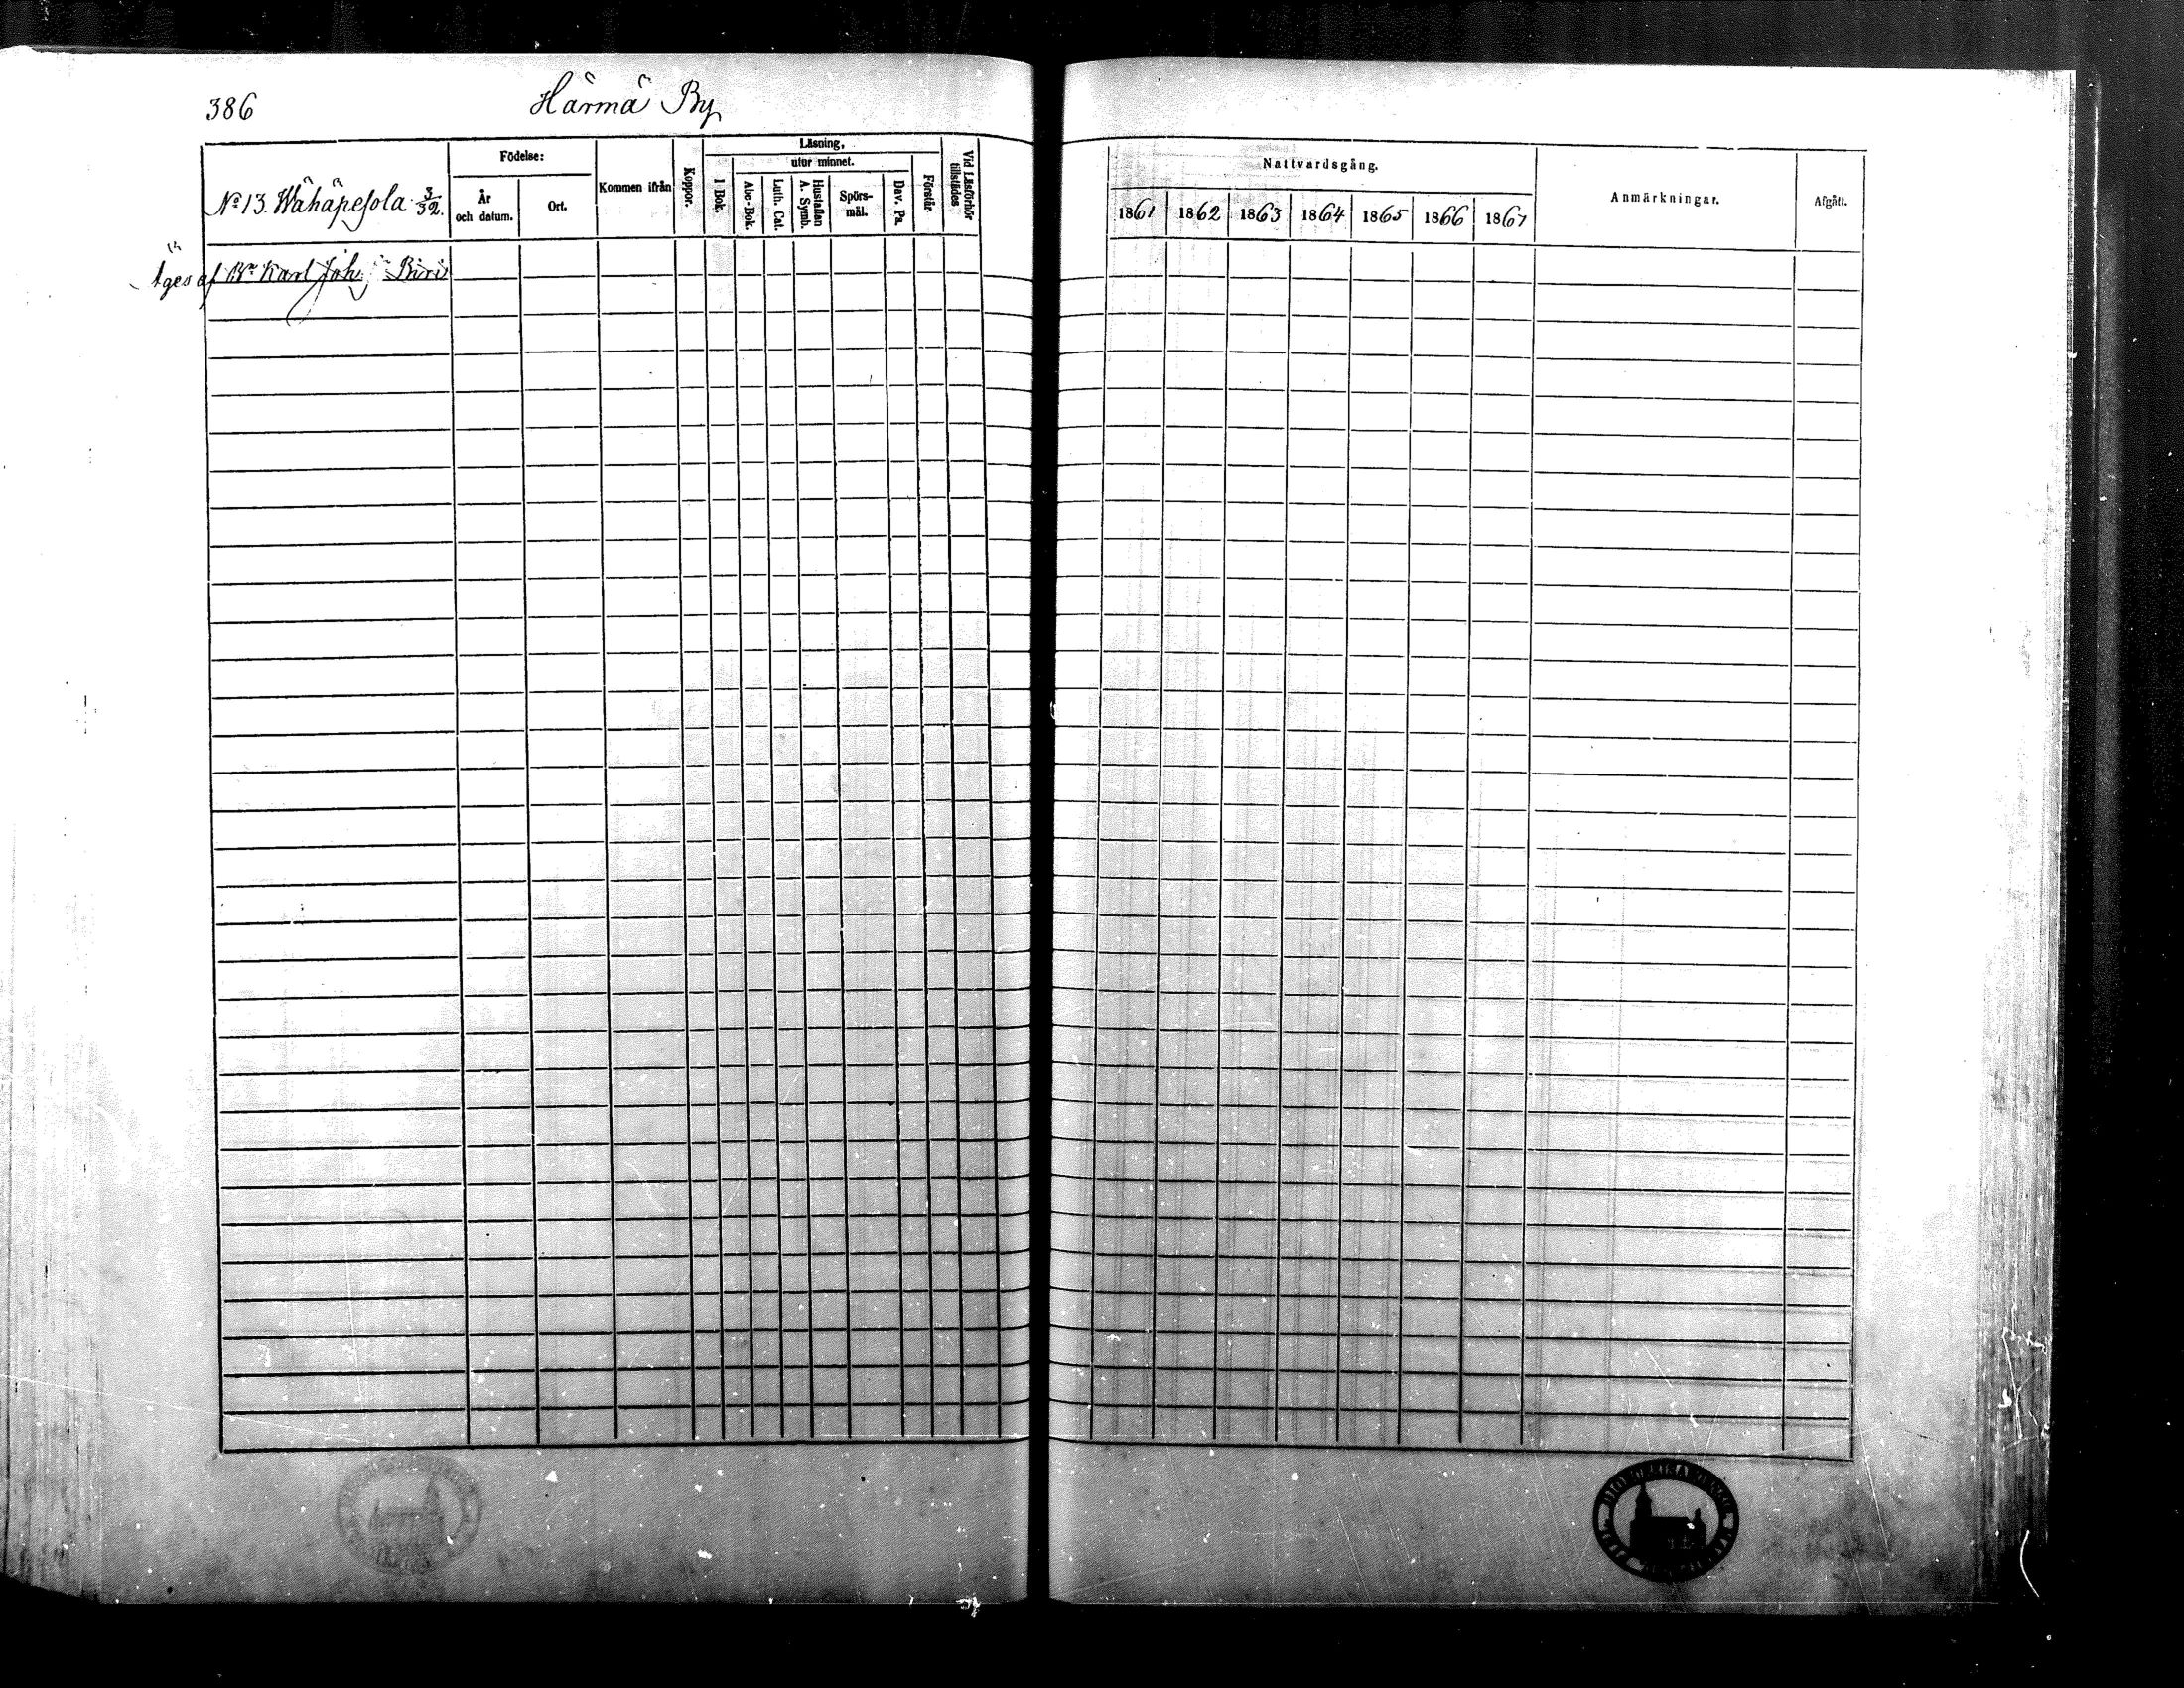 386
Härmä By
No 13. Wähäpesola 3/32.
Födelse:
År och datum.
Ort.
Kommen ifrån
Koppor.
Läsning,
utur minnet.
1 Bok.
Abc-Bok.
Luth. Cat.
Hustaflan A. Symb.
Spörs-mål.
Dav. Ps.
Förstår
Vid Läsförhör tillstädes
Äges af Bn Karl Joh
Nattvardsgång.
1861 1862 1863 1864 1865 1866 1867
Anmärkningar.
Afgått.